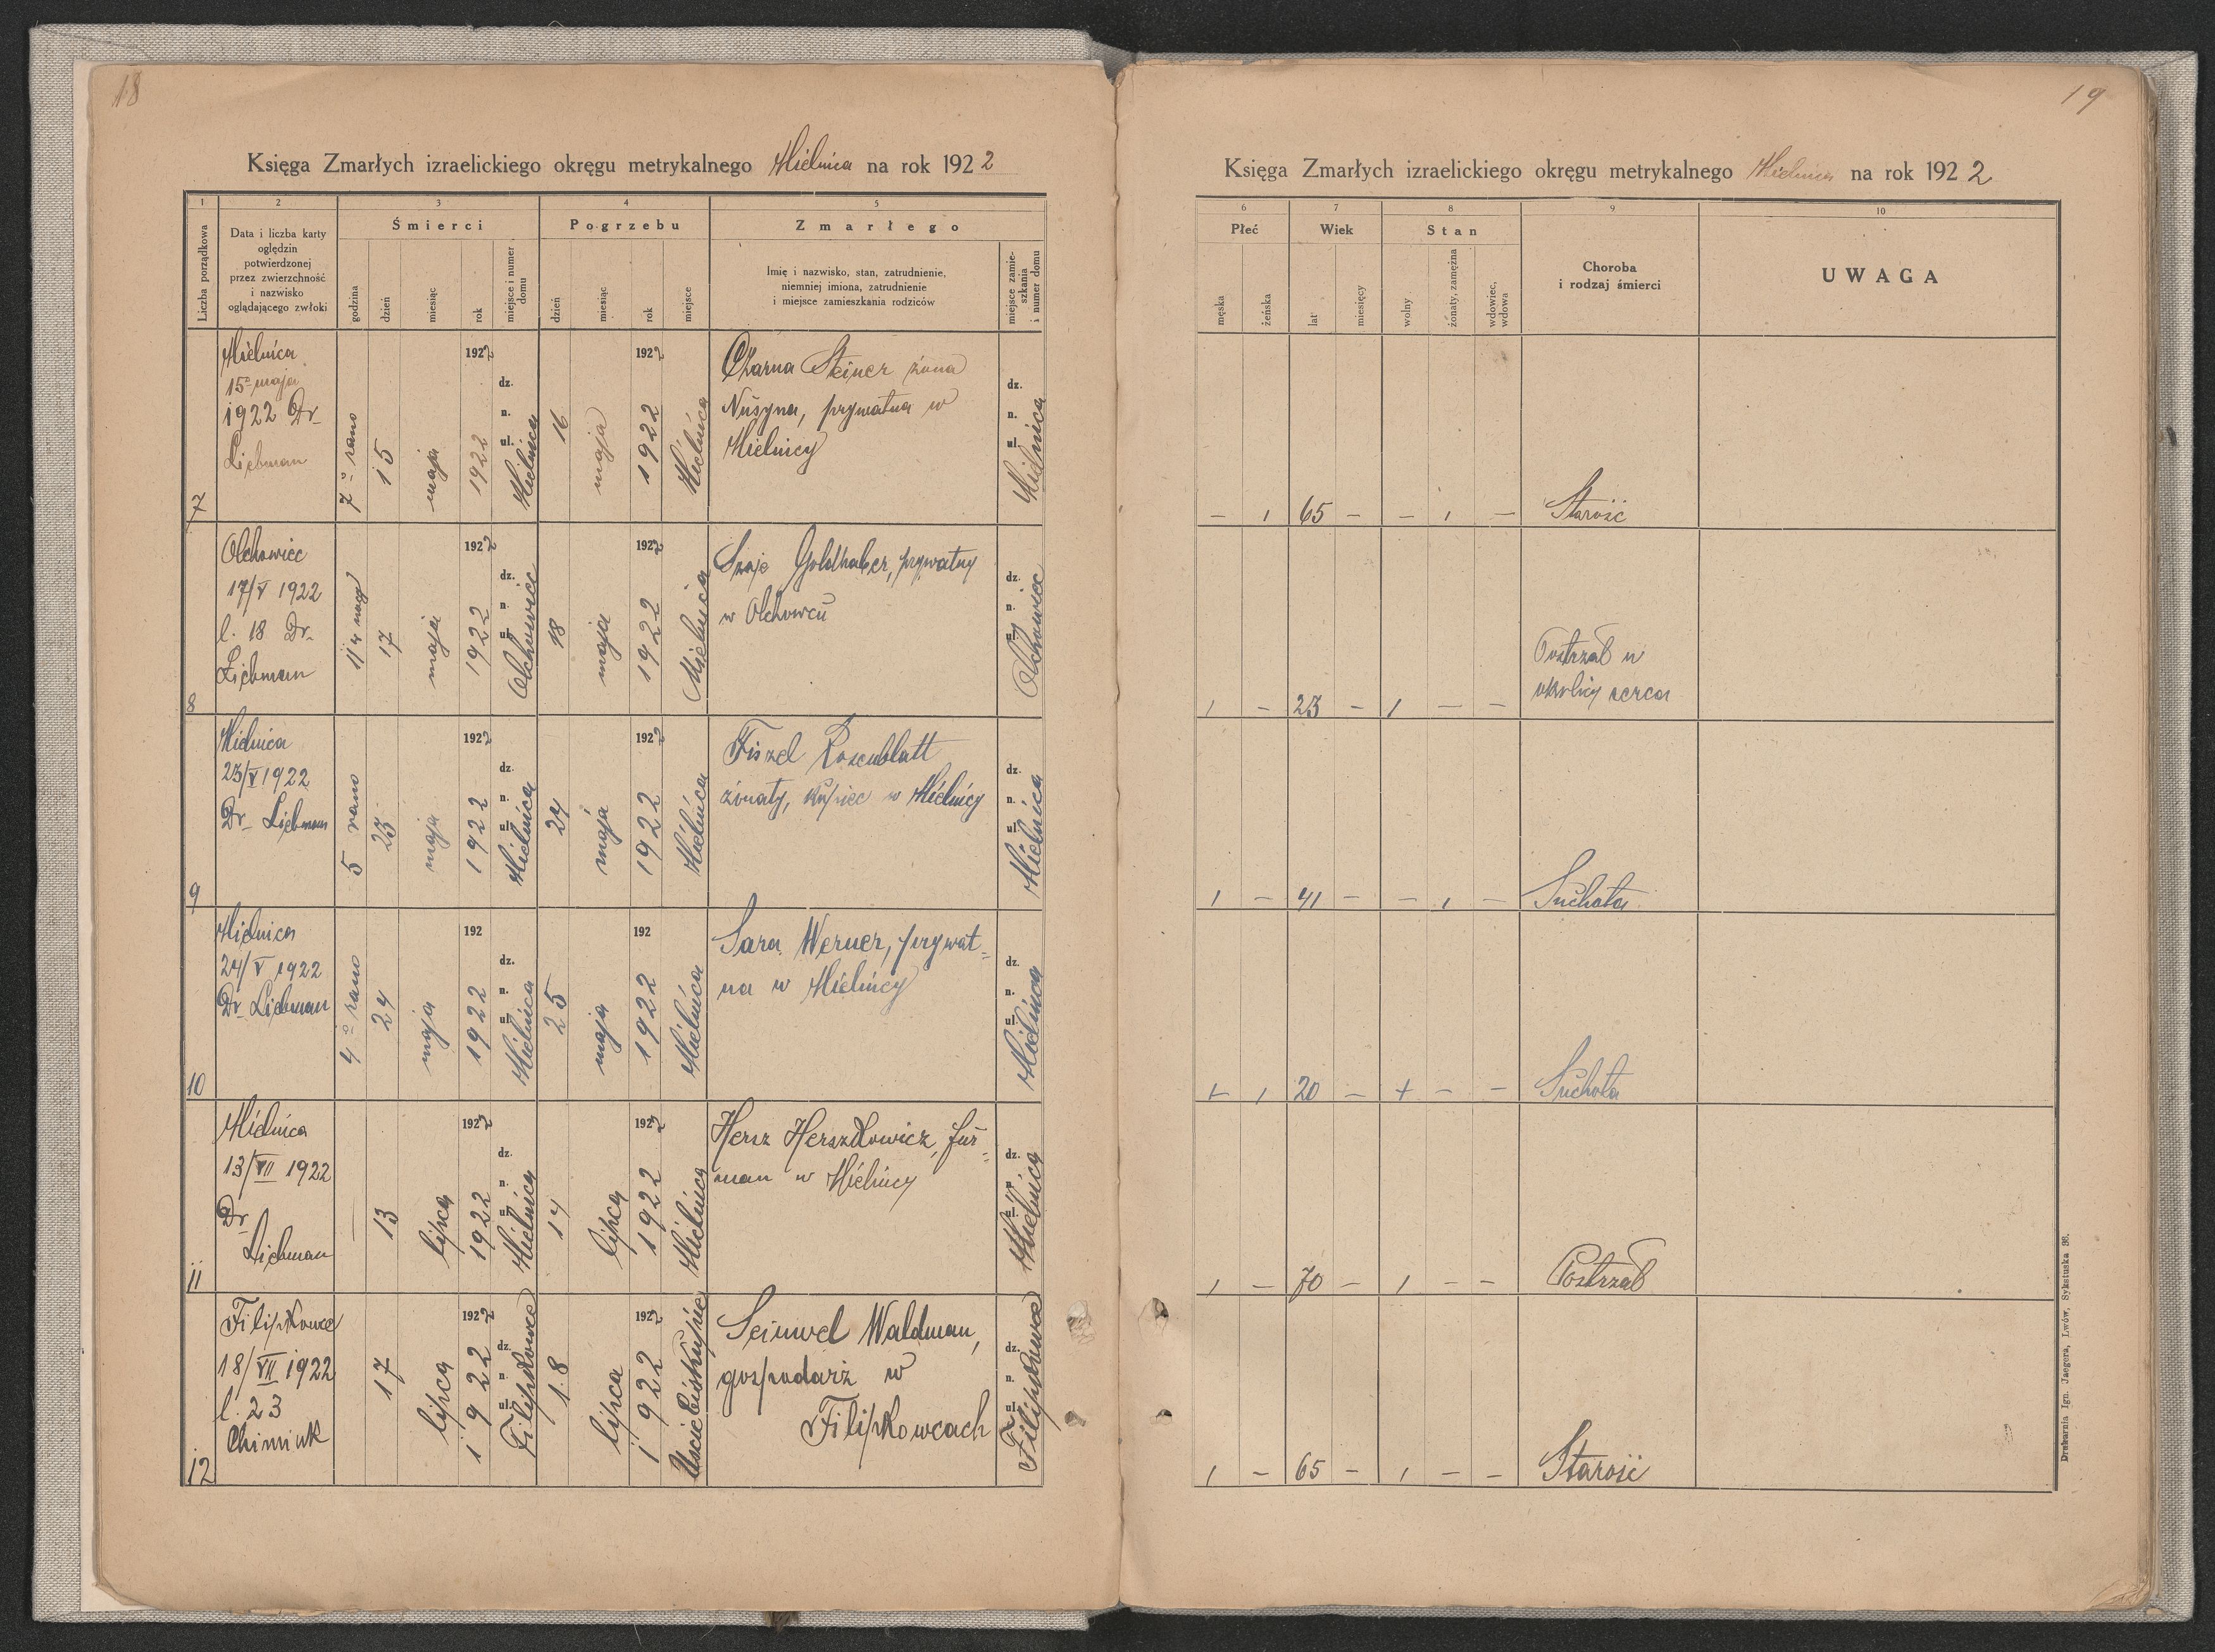 18
Księga Zmarłych izraelickiego okręgu metrykalnego Mielnica na rok 1922
1 2 3 4 5
Liczba porządkowa
Data i liczba karty
oględzin
potwierdzonej
przez zwierzchność
i nazwisko
oglądającego zwłoki
Śmierci
godzina
dzień
miesiąc
rok
miejsce i numer
domu
Pogrzebu
dzień
miesiąc
rok
miejsce
Zmarłego
Imię i nazwisko, stan, zatrudnienie,
niemniej imiona, zatrudnienie
i miejsce zamieszkania rodziców
miejsce zamie-
szkania
i numer domu
7
Mielnica
15º maja
1922 Dr
Liebman
7º rano
15
maja
1922
1922
dz.
n.
ul.
Mielnica
16
maja
1922
1922
Mielnica
Charna Steiner żona
Nusyna, prywatna w
Mielnicy
dz.
n.
ul.
Mielnica
8
Olchowiec
17/V 1922
l. 18 Dr
Liebman
11 w nocy
17
maja
1922
1922
dz.
n.
ul.
Olchowiec
18
maja
1922
1922
Mielnica
Szaje Goldhaber, prywatny
w Olchowcu
dz.
n.
ul.
Olchowiec
9
Mielnica
23/V 1922
Dr Liebman
5 rano
23
maja
1922
1922
dz.
n.
ul.
Mielnica
24
maja
1922
1922
Mielnica
Fiszel Rosenblatt
żonaty, kupiec w Mielnicy
dz.
n.
ul.
Mielnica
10
Mielnica
24/V 1922
Dr Liebman
4º rano
24
maja
192
1922
dz.
n.
ul.
Mielnica
25
maja
192
1922
Mielnica
Sara Werner, prywat=
na w Mielnicy
dz.
n.
ul.
Mielnica
11
Mielnica
13/VII 1922
Dr
Liebman
—
13
lipca
1922
1922
dz.
n.
ul.
Mielnica
14
lipca
1922
1922
Mielnica
Hersz Herszkowicz, fur=
man w Mielnicy
dz.
n.
ul.
Mielnica
12
Filipkowce
18/VII 1922
l. 23
Chimiuk
17
lipca
1922
1922
dz.
n.
ul.
Filipkowce
18
lipca
1922
1922
Uście biskupie
Seinwel Waldman,
gospodarz w
Filipkowcach
dz.
n.
ul.
Filipkowce
19
Księga Zmarłych izraelickiego okręgu metrykalnego Mielnica na rok 1922
6 7 8 9 10
Płeć
męska
żeńska
Wiek
lat
miesięcy
Stan
wolny
żonaty, zamężna
wdowiec,
wdowa
Choroba
i rodzaj śmierci
UWAGA
— 1 65 — — 1 — Starość
Postrzał w
okolicy serca
1 — 23 — 1 — —
1 — 41 — — 1 — Suchota
+ 1 20 — + — — Suchota
1 — 70 — 1 — — Postrzał
1 — 65 — 1 — — Starość
Drukarnia Ign. Jaegera, Lwów, Sykstuska 36.